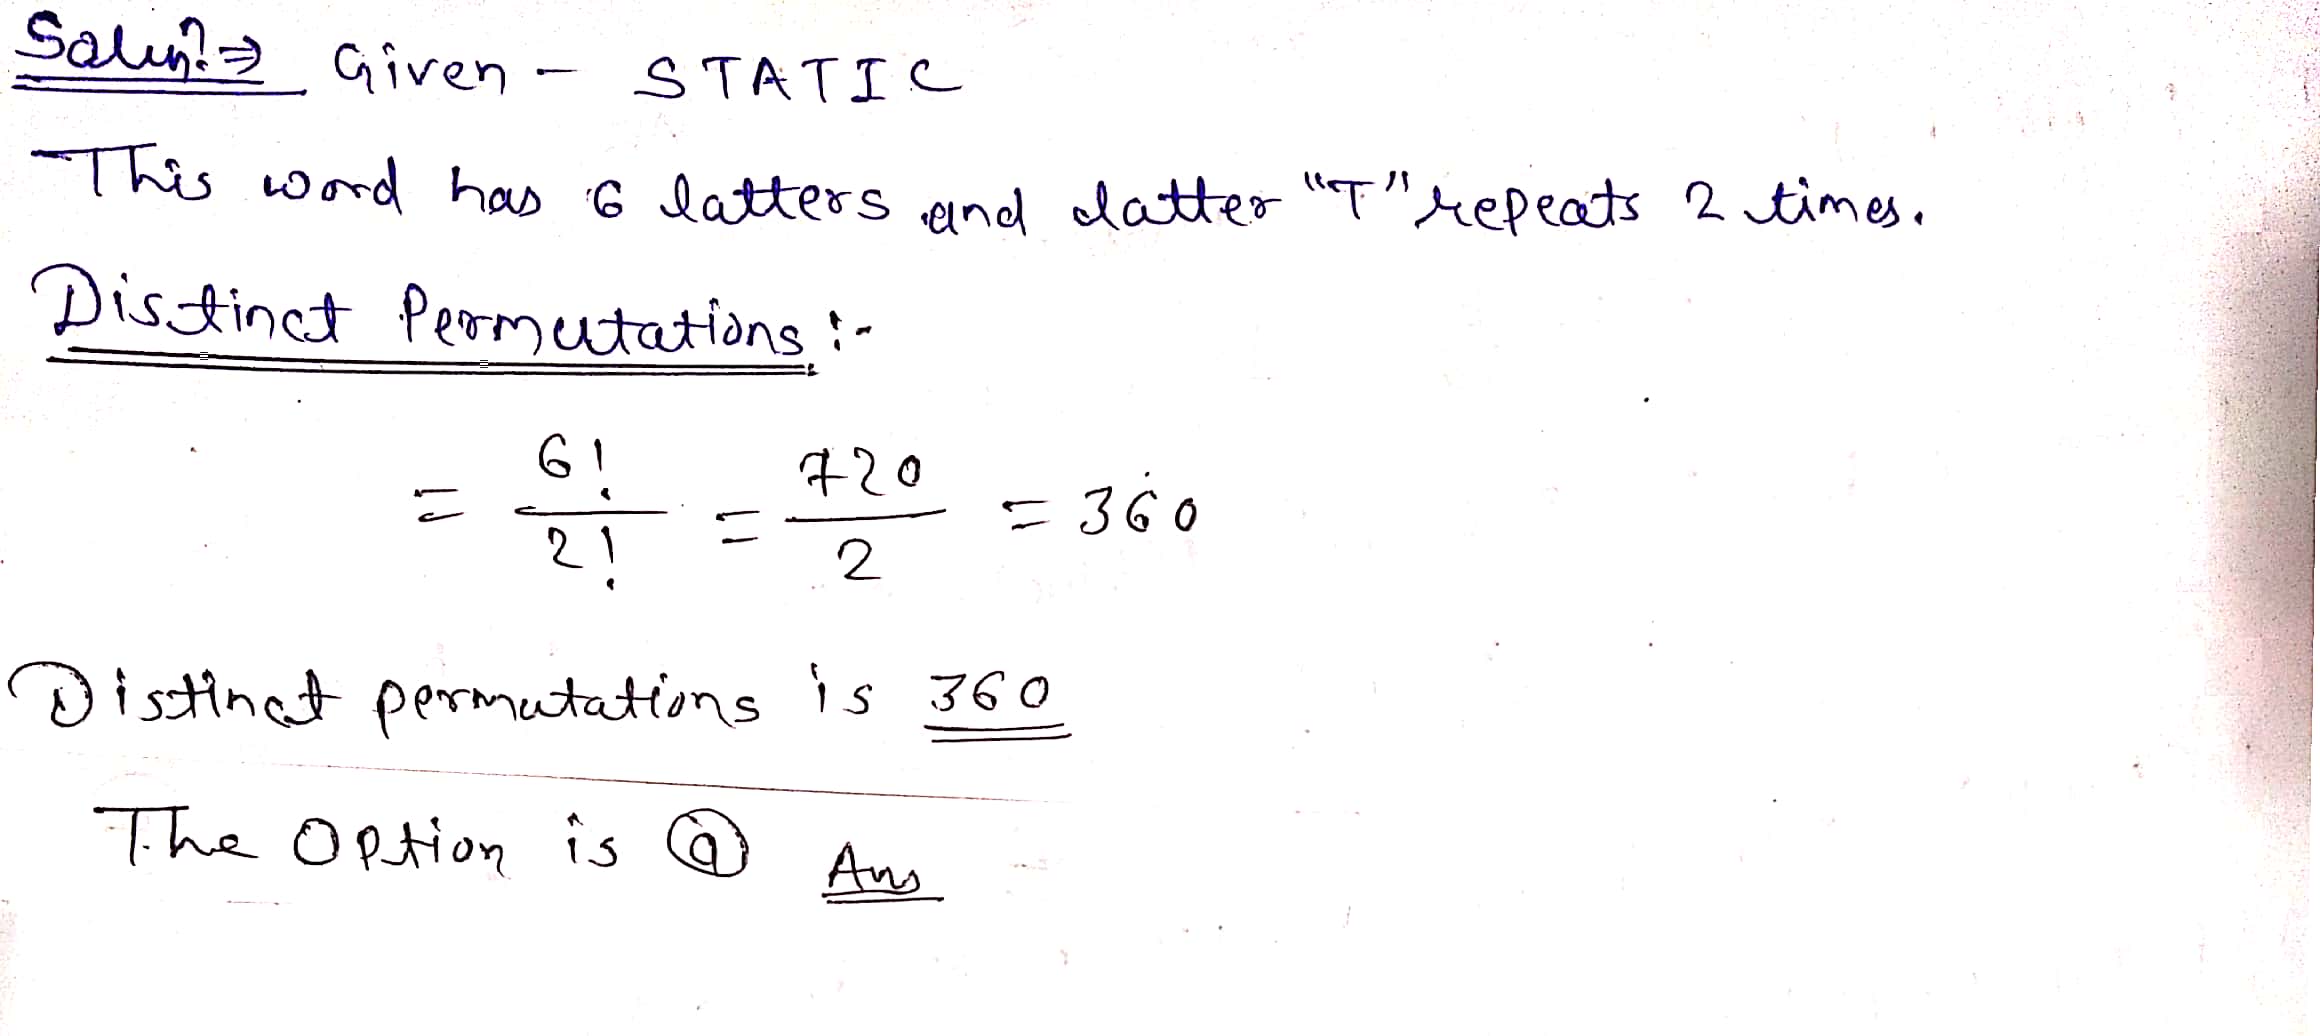 Solun? ⇒ Given - STATIC
This word has 6 latters and latter "T" repeats 2 times.
Distinct Permutations :-
= 6!/2! = 720/2 = 360
Distinct permutations is 360
The Option is ⓐ Ans